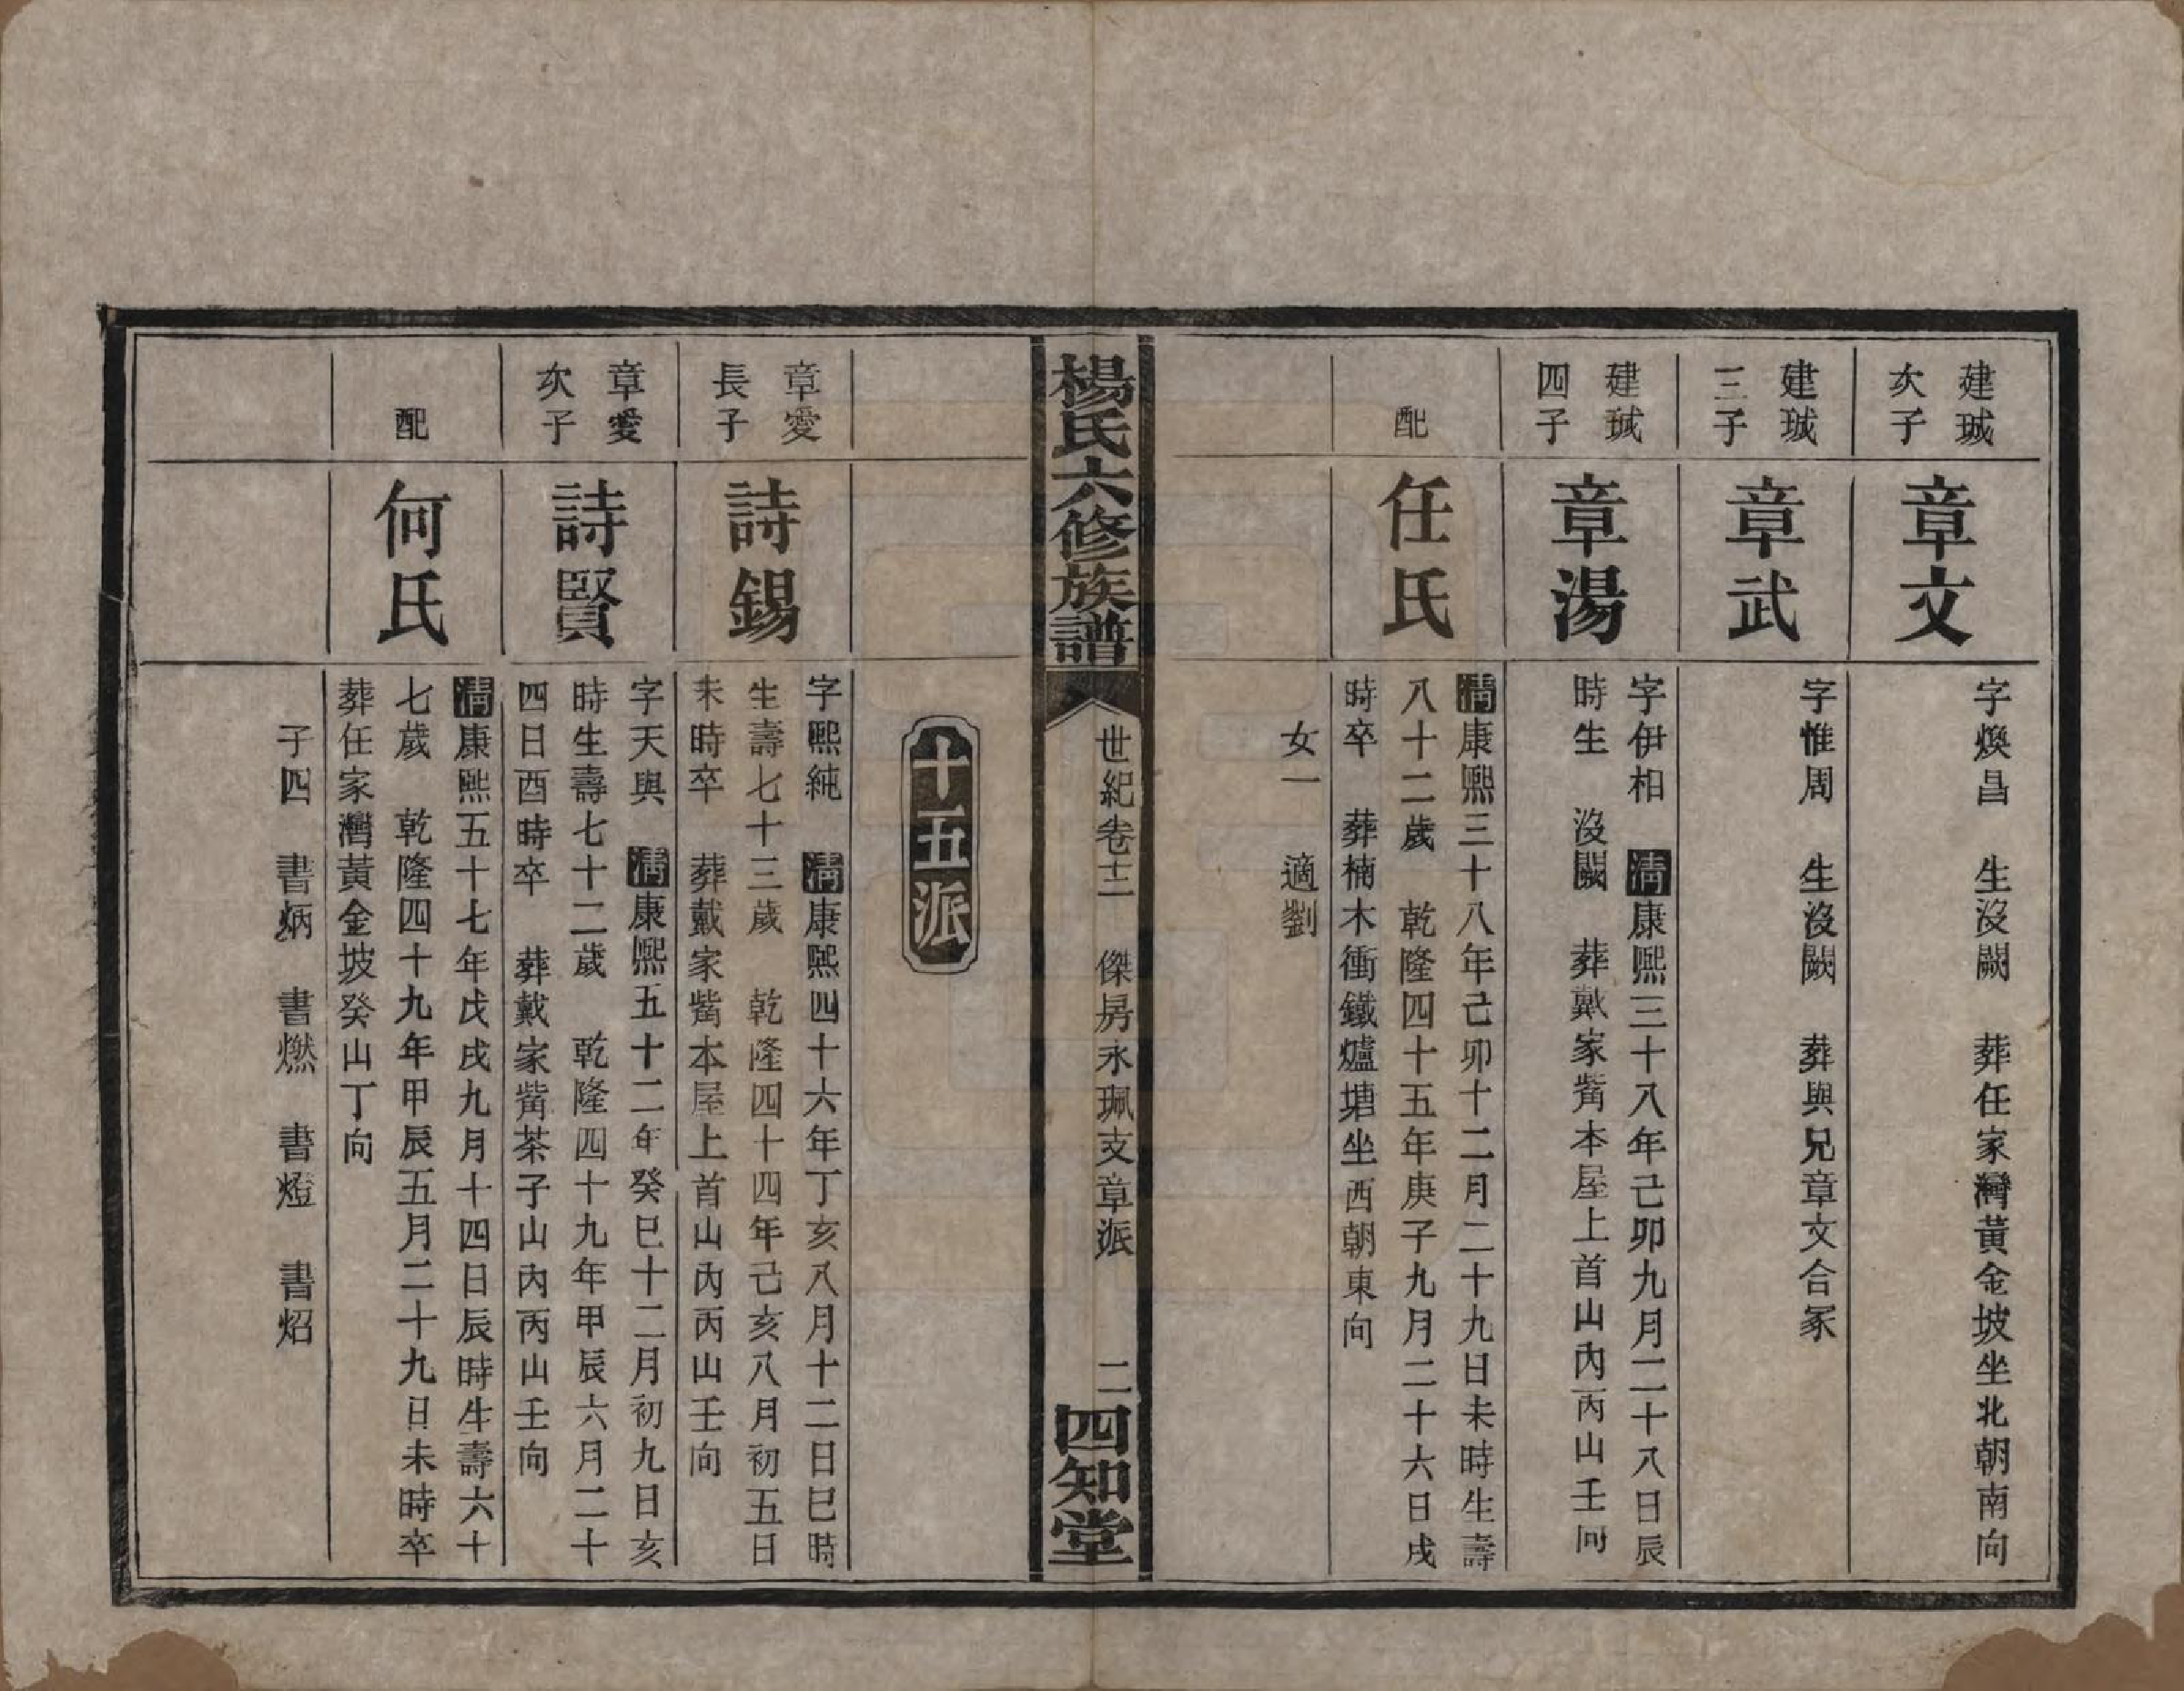 建瑊
次子
章文
字煥昌　生沒闕　葬任家灣黃金坡坐北朝南向
建瑊
三子
章武
字惟周　生沒闕　葬與兄章文合冢
建瑊
四子
章湯
字伊相　清康熙三十八年己卯九月二十八日辰
時生　沒闕　葬戴家觜本屋上首山內丙山壬向
配
任氏
清康熙三十八年己卯十二月二十九日未時生壽
八十二歲　乾隆四十五年庚子九月二十六日戌
時卒　葬楠木衝鐵爐塘坐西朝東向
女一　適劉
楊氏六修族譜
世紀卷十二　傑房永珮支章派　二
四知堂
十五派
章愛
長子
詩錫
字熙純　清康熙四十六年丁亥八月十二日巳時
生壽七十三歲　乾隆四十四年己亥八月初五日
未時卒　葬戴家觜本屋上首山內丙山壬向
章愛
次子
詩賢
字天與　清康熙五十二年癸巳十二月初九日亥
時生壽七十二歲　乾隆四十九年甲辰六月二十
四日酉時卒　葬戴家觜茶子山內丙山壬向
配
何氏
清康熙五十七年戊戌九月十四日辰時生壽六十
七歲　乾隆四十九年甲辰五月二十九日未時卒
葬任家灣黃金坡癸山丁向
子四　書炳　書燃　書燈　書炤